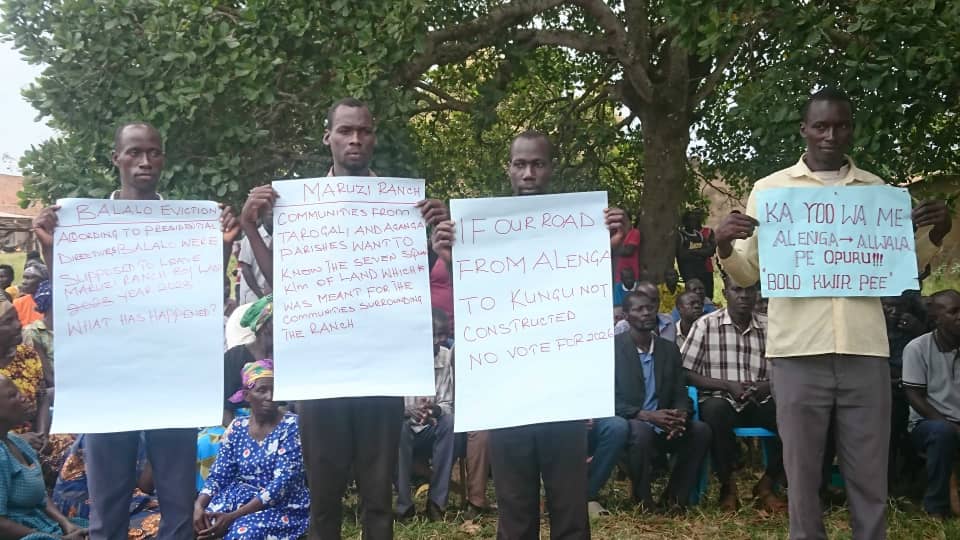 BALALO EVICTION
ACCORDING TO PRESIDENTIAL
DIRECTIVES BALALO WERE
SUPPOSED TO LEAVE
MARUZI RANCH BY LAST
YEAR 2023
WHAT HAS HAPPENED?
MARUZI RANCH
COMMUNITIES FROM
TAROGALI AND AGANGA
PARISHES WANT TO
KNOW THE SEVEN SQUARE
KLM OF LAND WHICH
WAS MEANT FOR THE
COMMUNITIES SURROUNDING
THE RANCH
IF OUR ROAD
FROM ALENGA
TO KUNGU NOT
CONSTRUCTED
NO VOTE FOR 2026
KA YOO WA ME
ALENGA → ALWALA
PE OPURU!!!
"BOLO KWIR PEE"